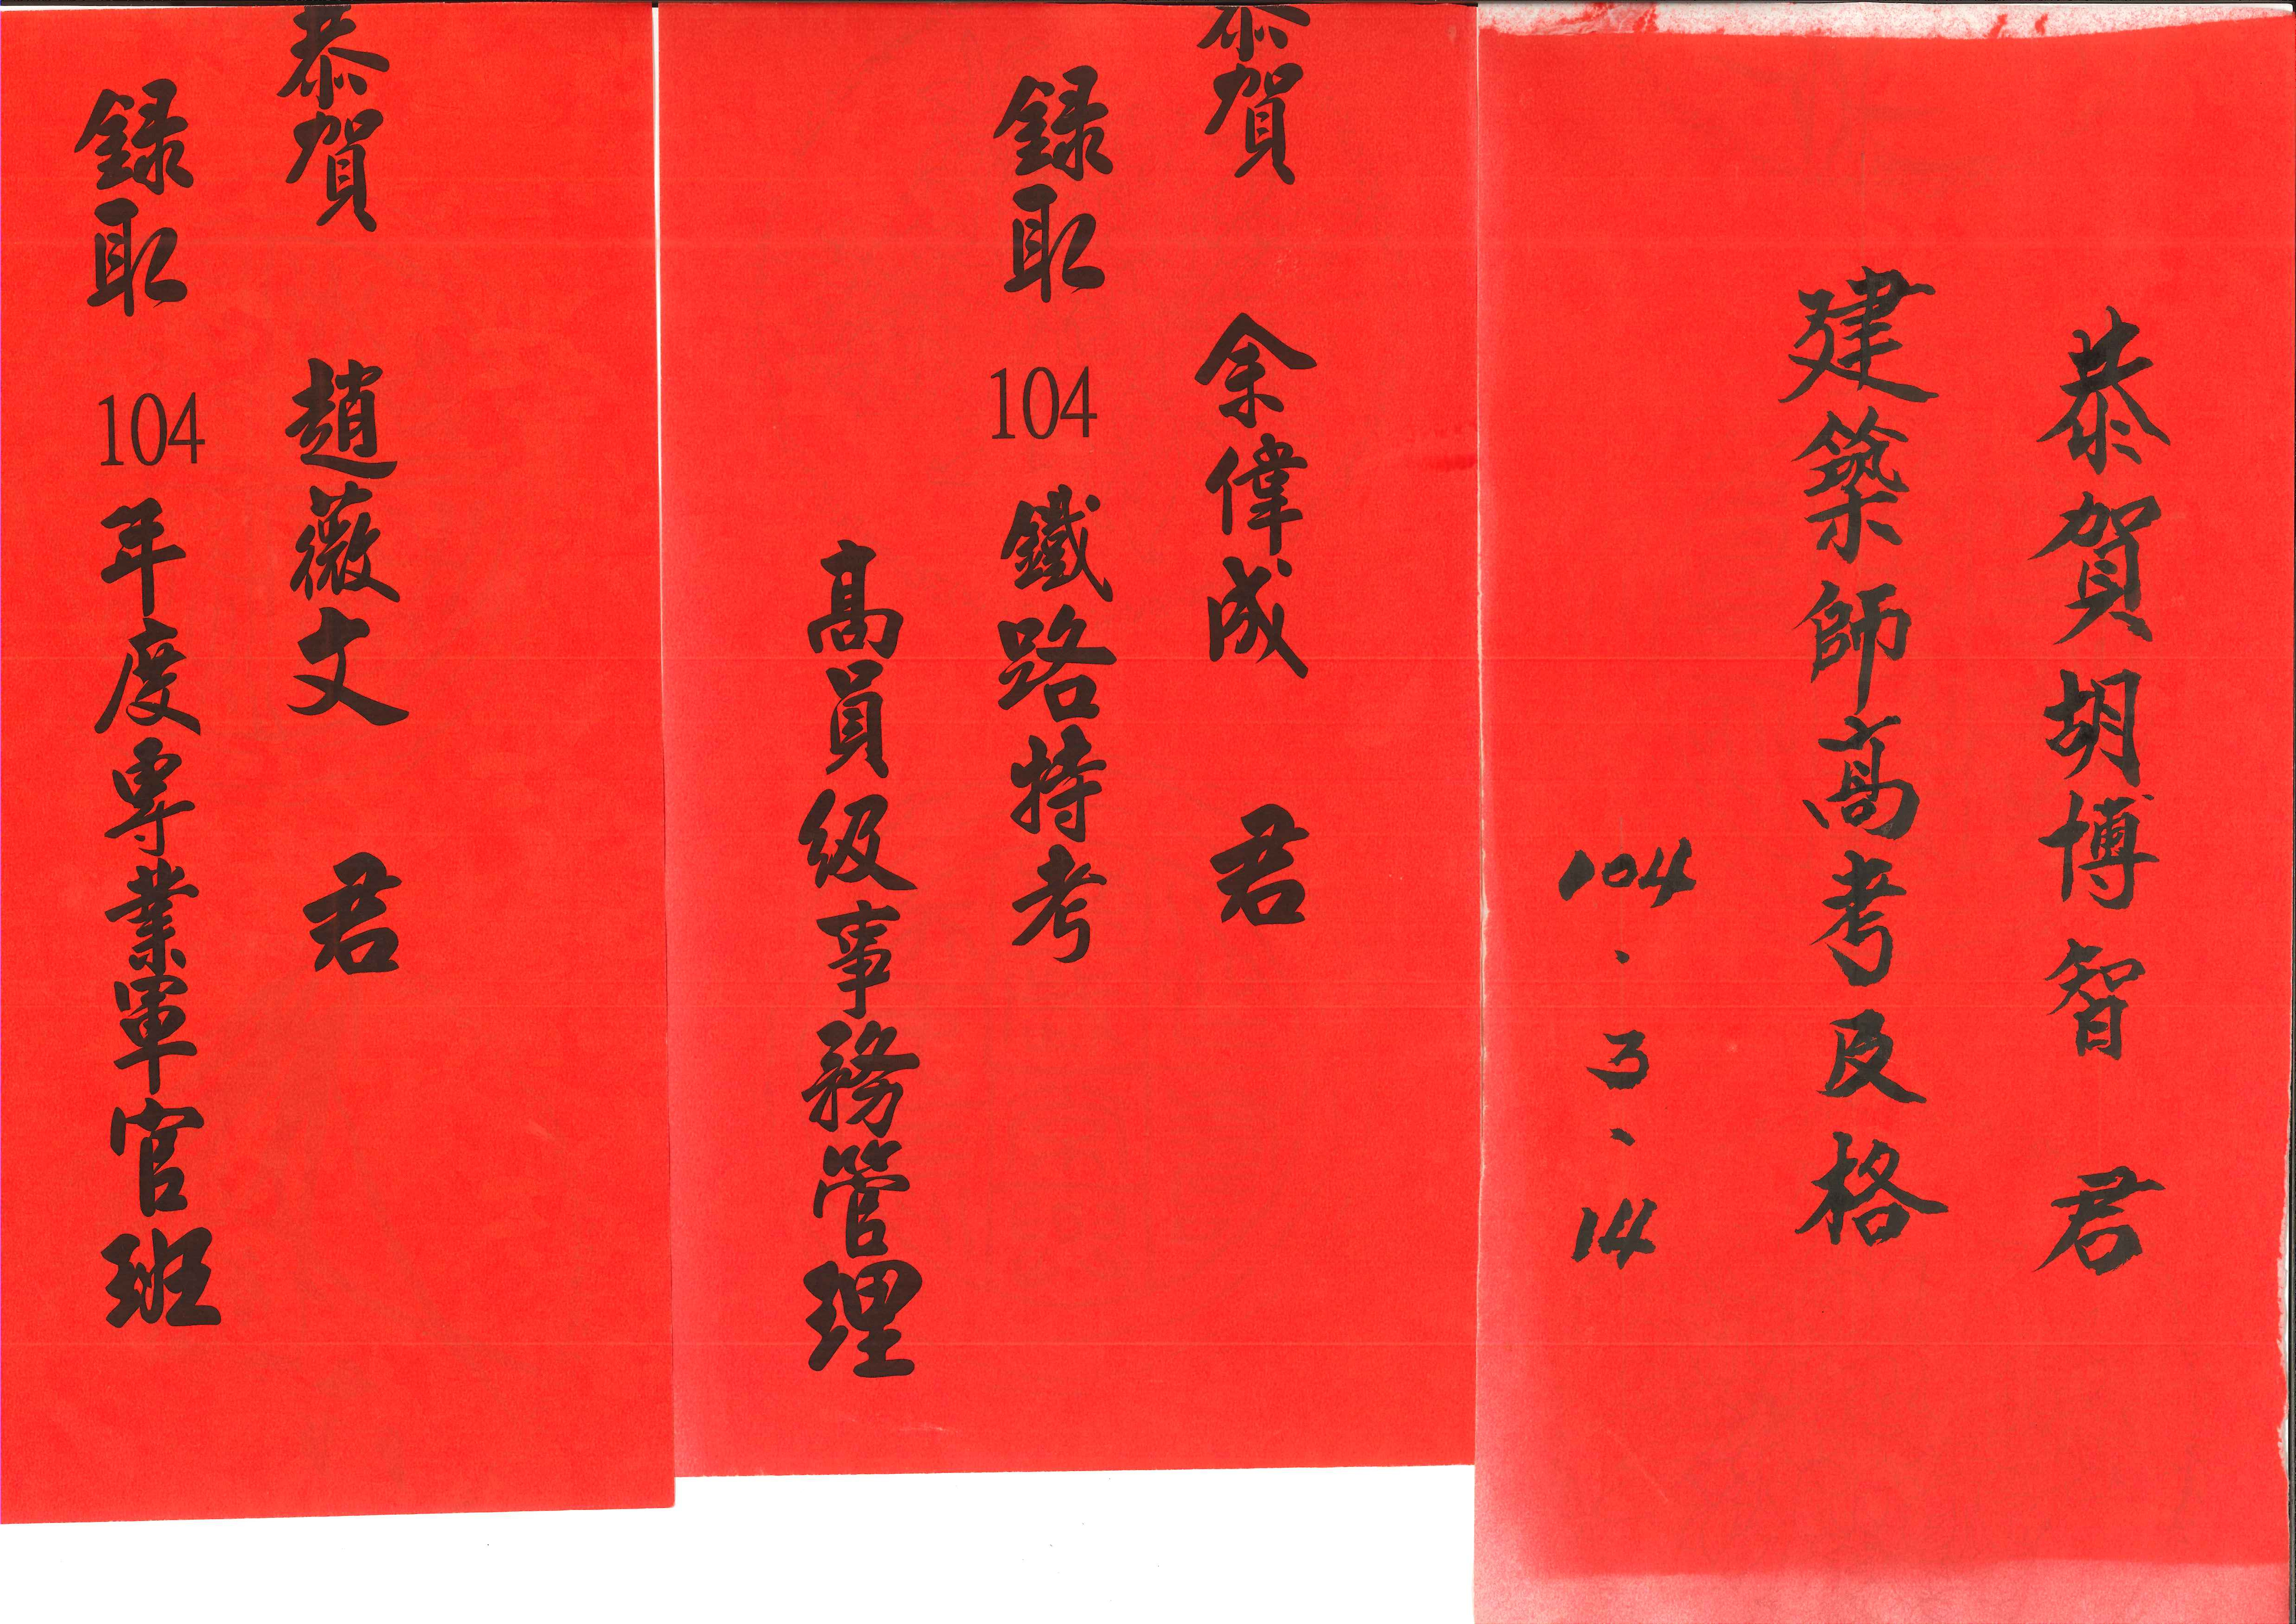 恭賀胡博智 君
建築師高考及格
104.3.14
恭賀 余偉成 君
錄取 104 鐵路特考
高員級事務管理
恭賀 趙薇文 君
錄取 104 年度專業軍官班